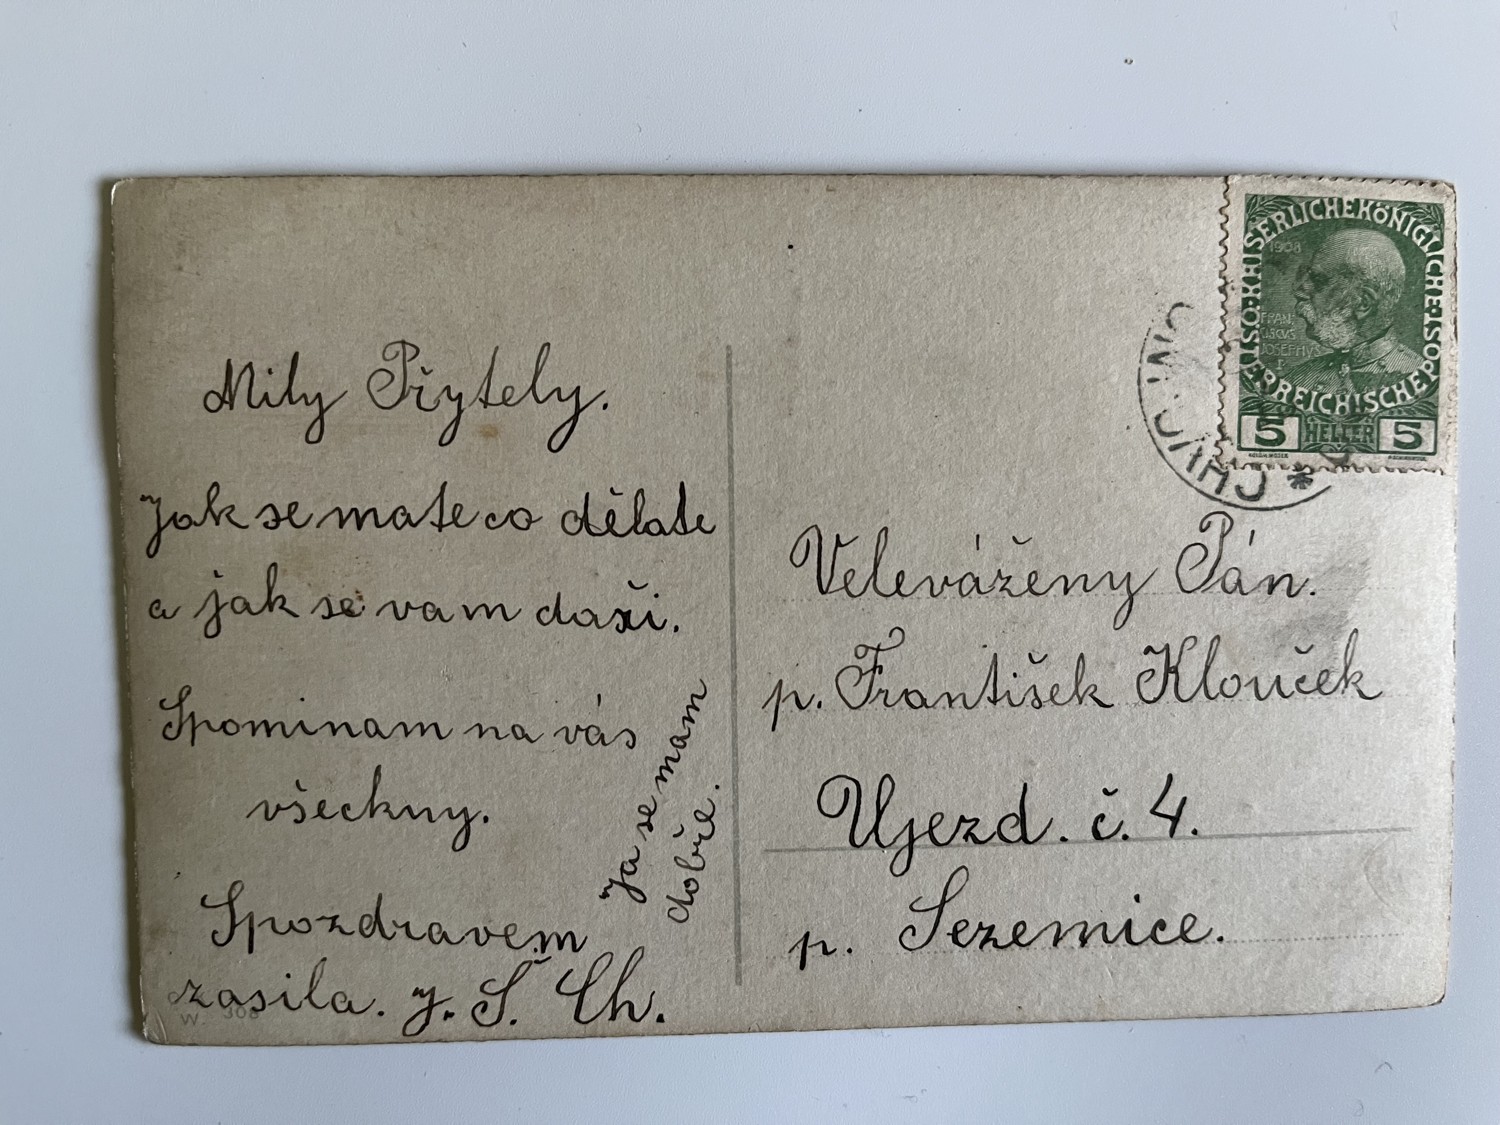 Mily Přytely.
Jak se mate co dělate
a jak se vam daři.
Spominam na vás
všeckny.
Ja se mam
dobře.
Spozdravem
zasila. J. Š. Ch.
W. 308
ÖSTERREICHISCHE POST KAISERLICHE KÖNIGLICHE
1908
FRAN
CISCUS
JOSEPHUS
I
5 HELLER 5
CHV
Veleváženy Pán.
p. František Klouček
Ujezd. č. 4.
p. Sezemice.